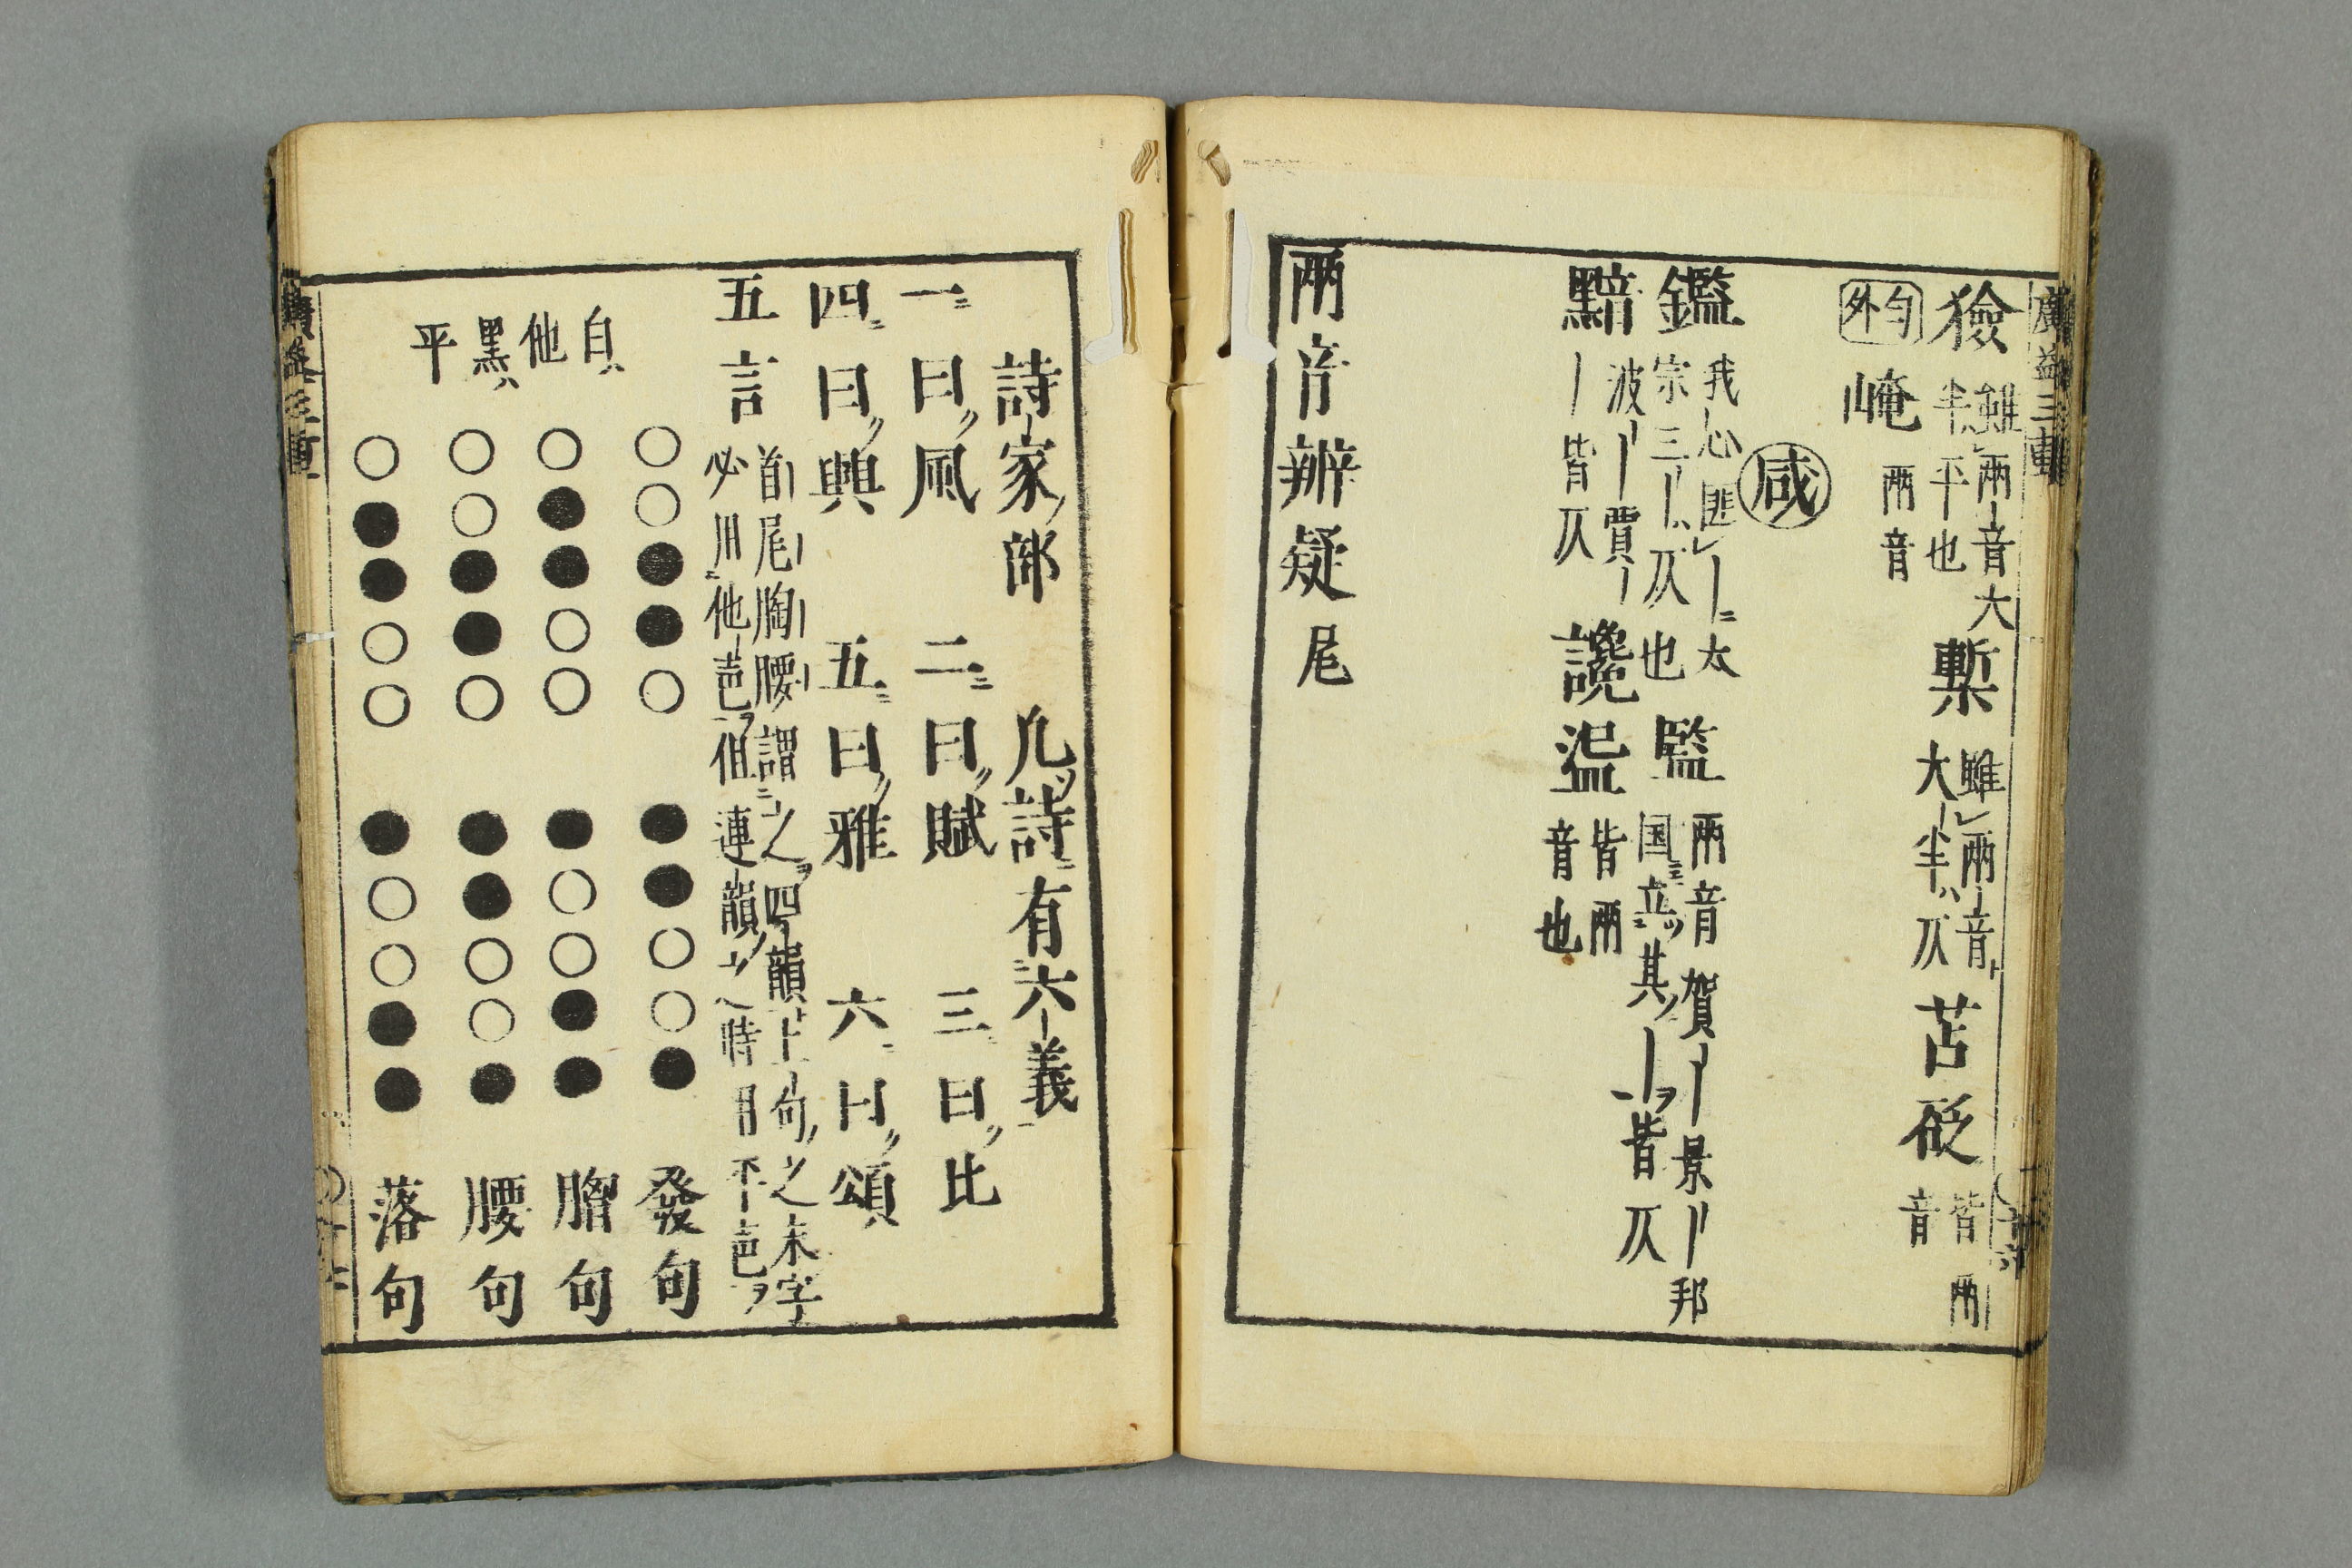 廣益三重
獫 雖兩音大
半平也
槧 雖兩音
大半仄
苫砭 皆兩
音
勻外 崦 兩音
咸
鑑 我心匪――太
宗三―仄也
監 兩音賀―景―邦
国立其―皆仄
黯 波―賈―
―皆仄
讒嵒 皆兩
音也
兩音辨疑尾
詩家部 凢詩有六義
一曰風 二曰賦 三曰比
四曰興 五曰雅 六曰頌
五言 首尾胸腰謂之四韻上句之末字
必用他声但連韻之時用不声
自
他
黑
平
○○●●○ ●●○○● 發句
○●●○○ ●○○●● 胷句
○○●●○ ●●○○● 腰句
○●●○○ ●○○●● 落句
廣益三重